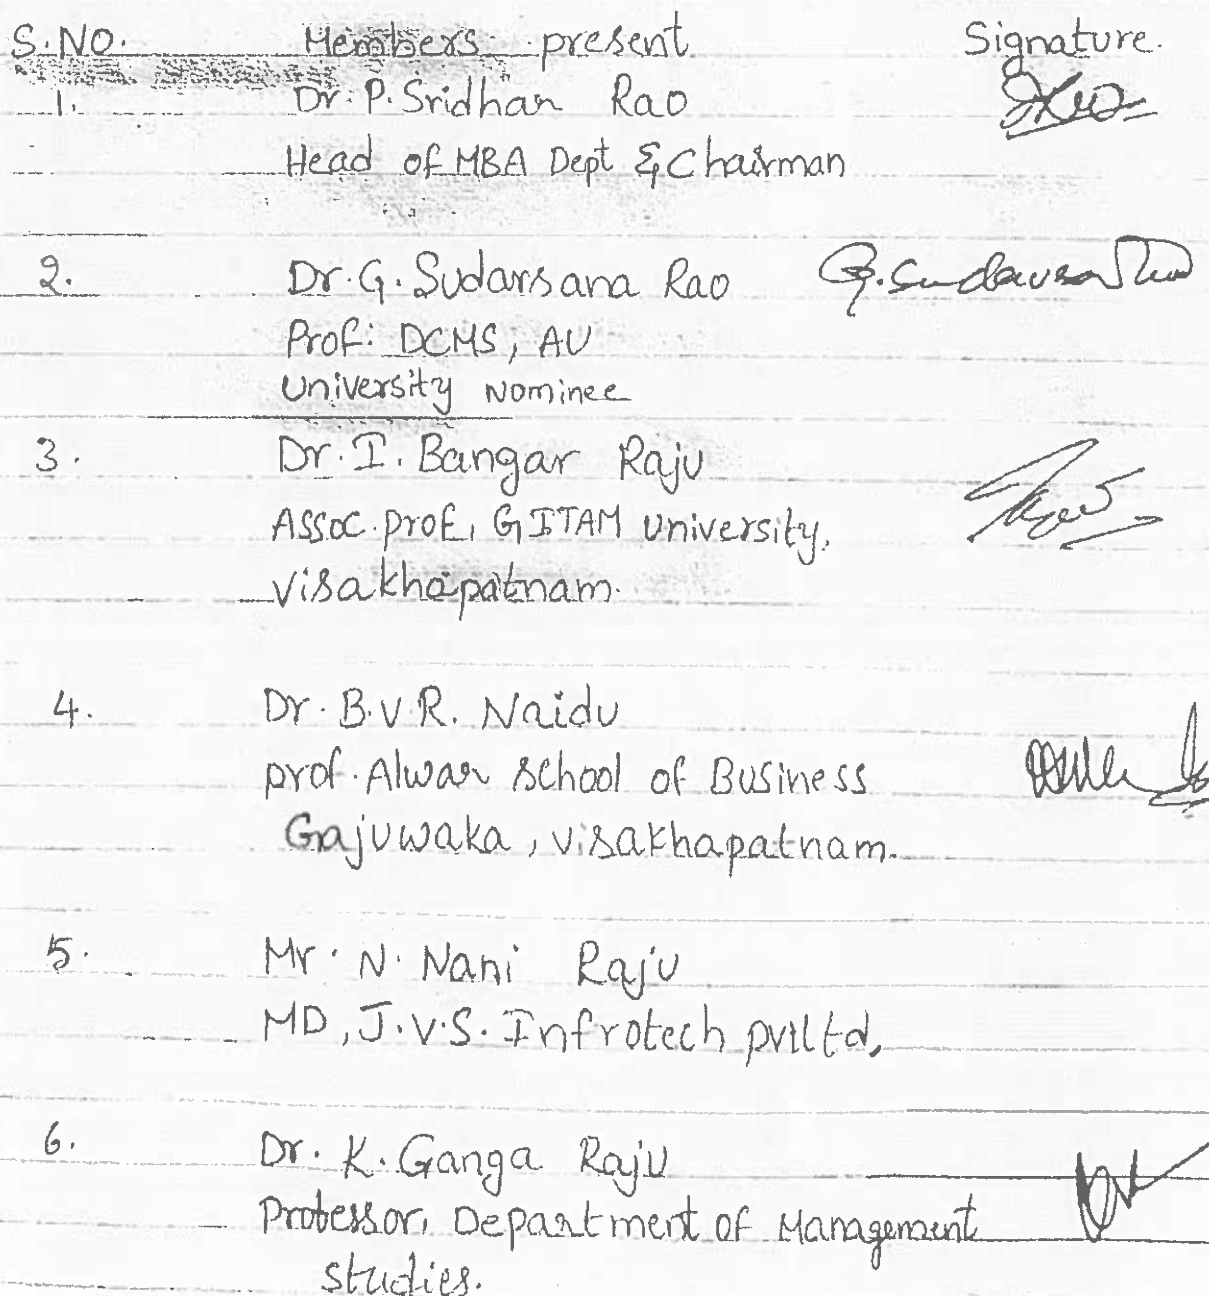 S.NO. Members present Signature.
1. Dr. P. Sridhar Rao
Head of MBA Dept & Chairman
2. Dr. G. Sudarsana Rao G. Sudarsana Rao
Prof: DCMS, AU
University Nominee
3. Dr. I. Bangar Raju
Assoc. prof, GITAM University,
Visakhapatnam.
4. Dr. B.V.R. Naidu
prof. Alwar School of Business
Gajuwaka, Visakhapatnam.
5. Mr. N. Nani Raju
MD, J.V.S. Infrotech pvtltd,
6. Dr. K. Ganga Raju
Professor, Department of Management
Studies.